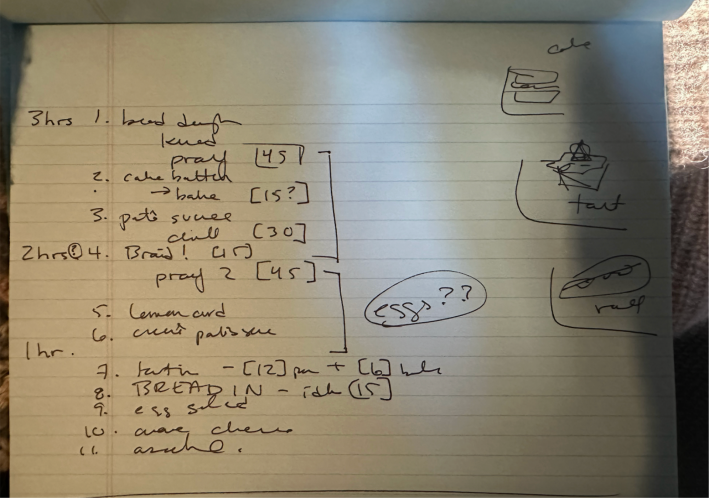 cake
3hrs 1. bread dough
knead
proof [45]
2. cake batter
→ bake [15?]
3. pate sucree
chill [30]
2hrs 4. Braid! [15]
proof 2 [45]
eggs??
tart
roll
5. lemon curd
6. creme patissiere
1hr.
7. - [12] + [6] bake
8. BREAD IN - [15]
9. egg salad
10. cheese
11.